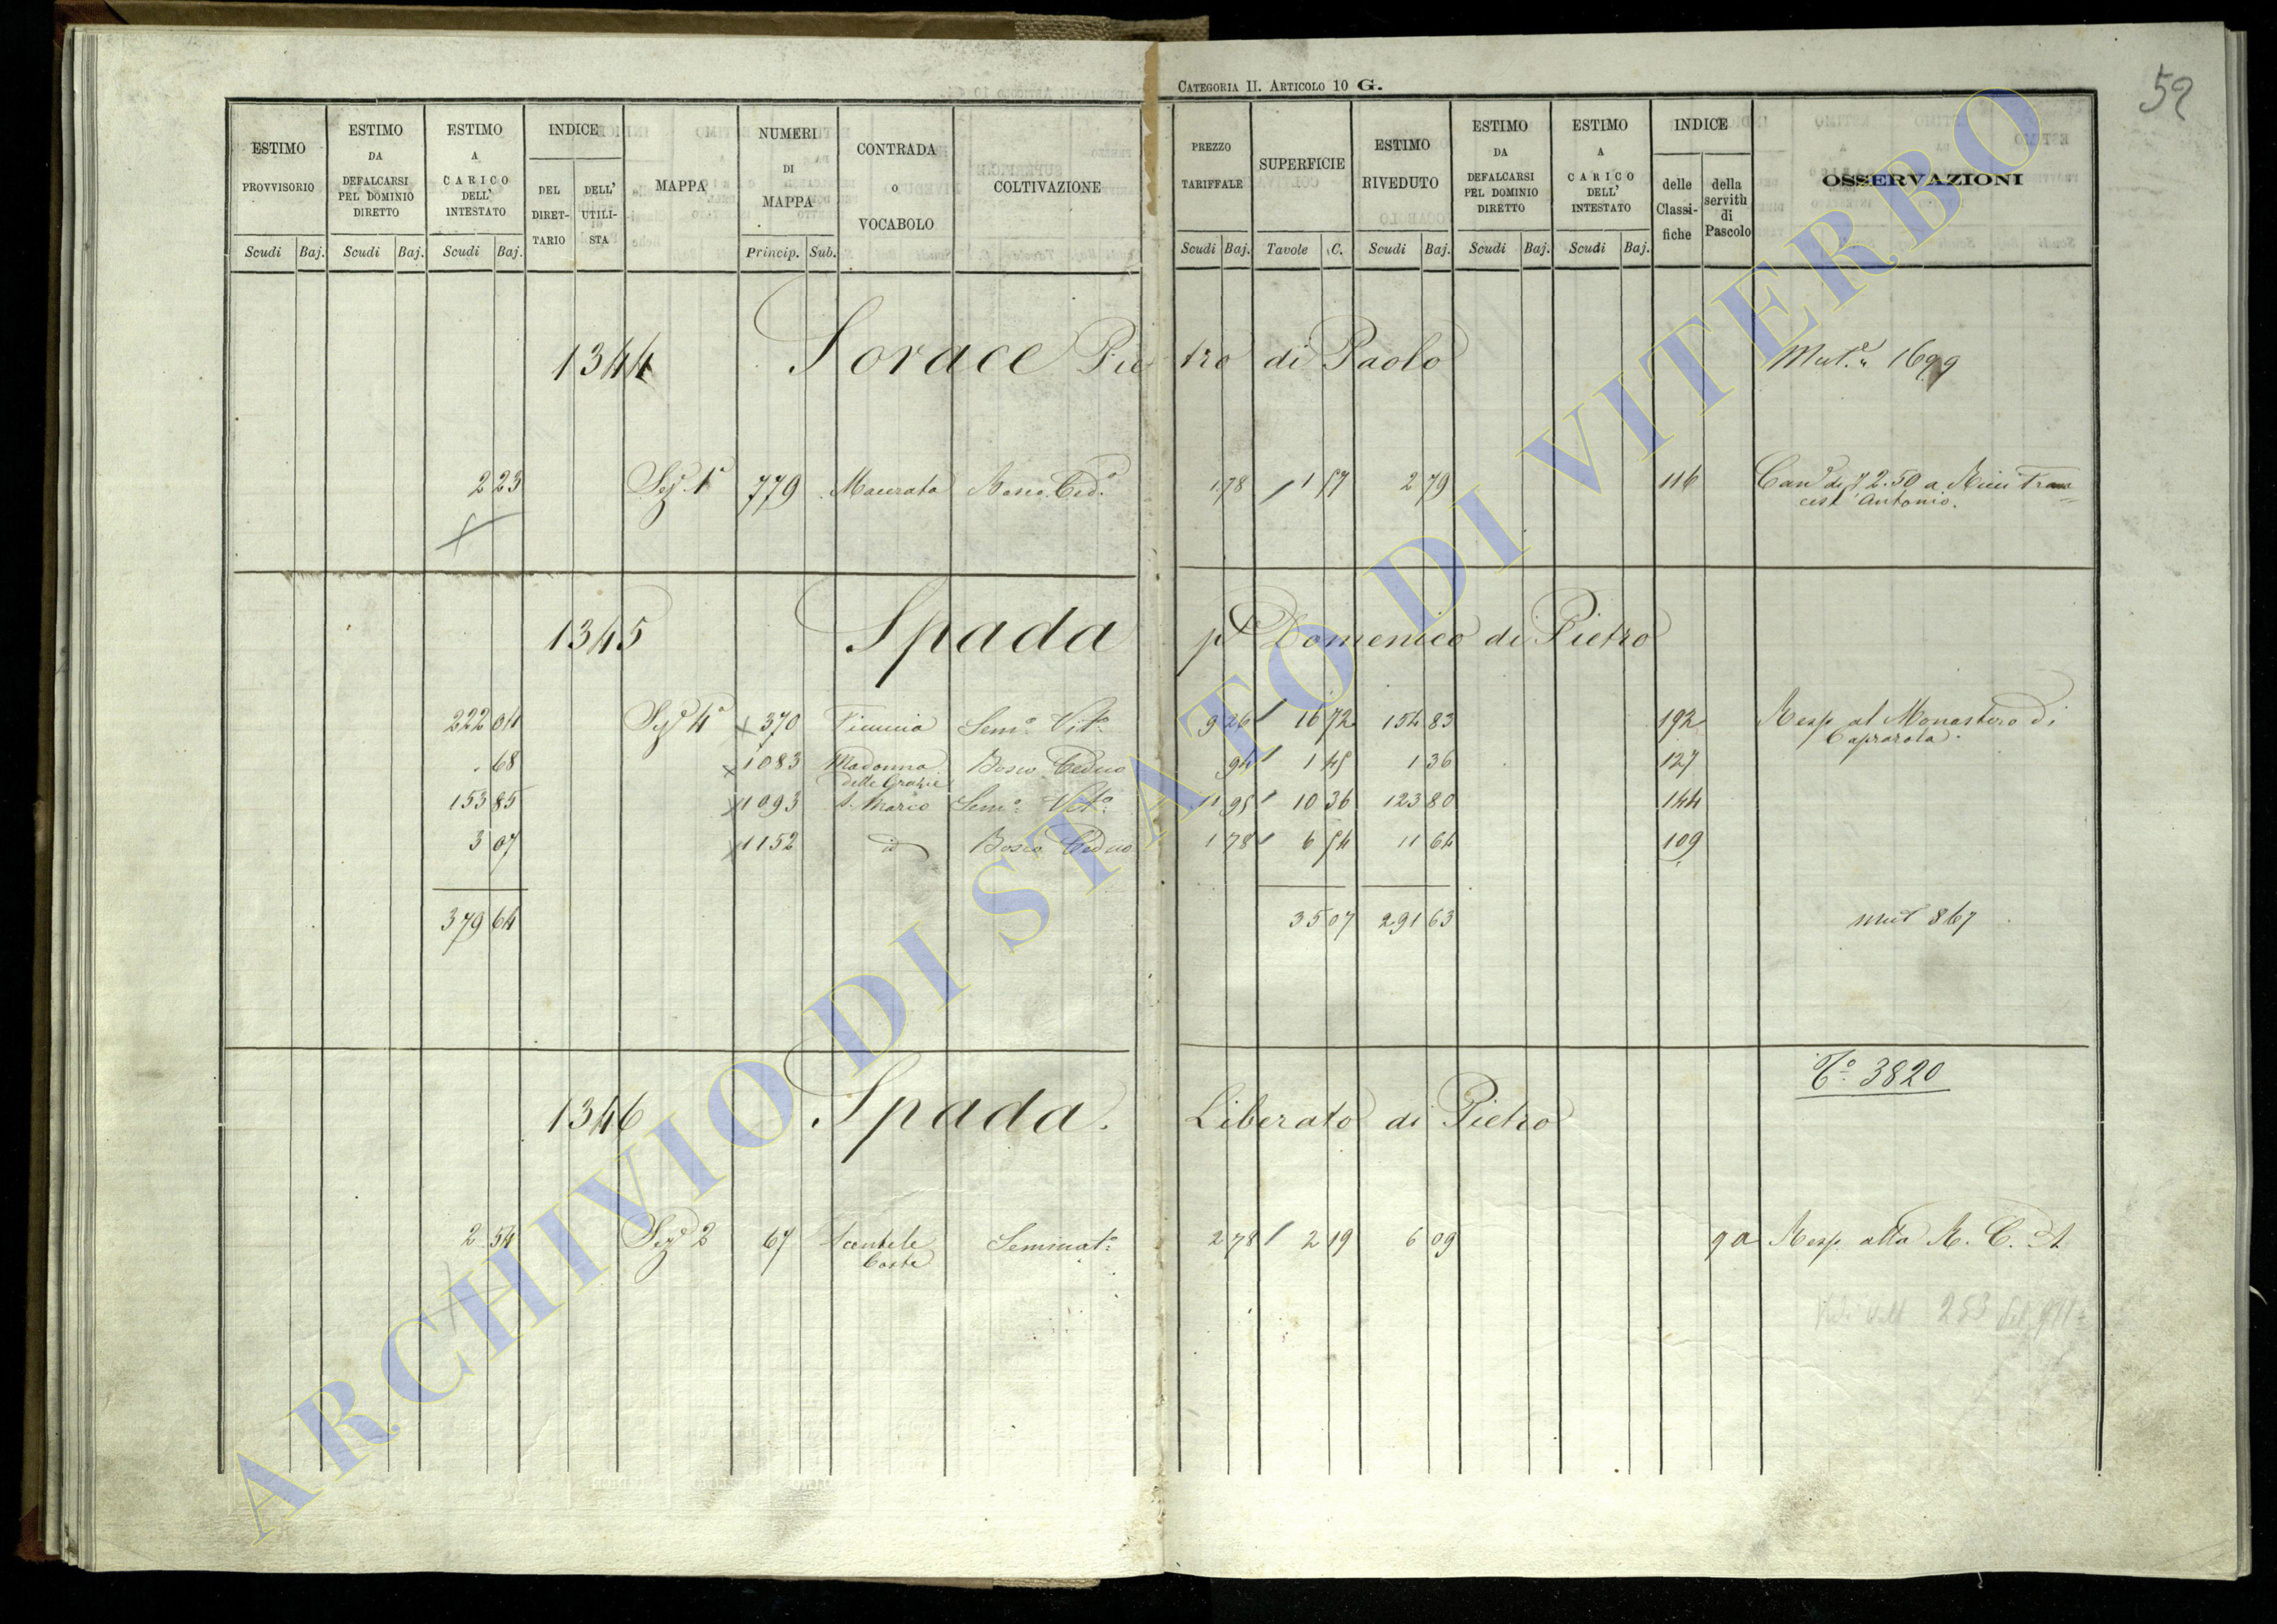 CATEGORIA II. ARTICOLO 10 G.
52
ESTIMO PROVVISORIO Scudi Baj.
ESTIMO DA DEFALCARSI PEL DOMINIO DIRETTO Scudi Baj.
ESTIMO A CARICO DELL' INTESTATO Scudi Baj.
INDICE DEL DIRETTARIO DELL' UTILISTA
MAPPA
NUMERI DI MAPPA Princip. Sub.
CONTRADA o VOCABOLO
COLTIVAZIONE
PREZZO TARIFFALE Scudi Baj.
SUPERFICIE Tavole C.
ESTIMO RIVEDUTO Scudi Baj.
ESTIMO DA DEFALCARSI PEL DOMINIO DIRETTO Scudi Baj.
ESTIMO A CARICO DELL' INTESTATO Scudi Baj.
INDICE delle Classifiche della servitù di Pascolo
OSSERVAZIONI
1344 Sorace Pietro di Paolo Mut.e 1699
2 23 Sez. 1a 779 Macerata Bosco Ced.o 1 78 1 57 2 79 116 Can. di 2.50 a Ricci Fran=
cesc Antonio.
1345 Spada pt Domenico di Pietro
222 04 Sez 4a 370 Semo. Vito. 9 26 16 72 154 83 192 Resp. al Monastero di
Caprarola.
. 68 1083 Madonna
delle Grazie Bosco Ceduo 94 1 45 1 36 127
153 85 1093 S. Marco Semo. Vito. 11 95 10 36 123 80 144
3 07 1152 id Bosco Ceduo 1 78 6 54 11 64 109
379 64 35 07 291 63 mut 867
To. 3820
1346 Spada. Liberato di Pietro
2 54 Sez 2 67 Scentele
Coste Seminato. 2 78 2 19 6 09 9 a Resp. alla R. C. A.
253
ARCHIVIO DI STATO DI VITERBO